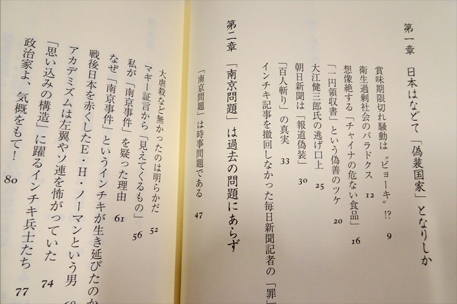 第一章 日本はなどて「偽装国家」となりしか
賞味期限切れ騒動は〝ビョーキ〟!? 9
衛生過剰社会のパラドクス 12
想像絶する「チャイナの危ない食品」 16
「一円領収書」という偽善のツケ 20
大江健三郎氏の逃げ口上 25
朝日新聞は「報道偽装」 30
「百人斬り」の真実 33
インチキ記事を撤回しなかった毎日新聞記者の「罪」
第二章 「南京問題」は過去の問題にあらず
「南京問題」は時事問題である 47
大虐殺など無かったのは明らかだ 52
マギー証言から「見えてくるもの」 56
私が「南京事件」を疑った理由 61
なぜ「南京事件」というインチキが生き延びたのか
戦後日本を赤くしたE・H・ノーマンという男
アカデミズムは左翼やソ連を怖がっていた 74
「思い込みの構造」に躍るインチキ兵士たち 77
政治家よ、気概をもて! 80